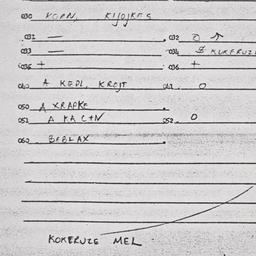 030 KORN, KIJOJKES
031 — 032 O ↗
033 — 034 $ KUKERUZE
035 + 036 +
040 A KEDL, KREJT 041 O
050 A XRAPKE
051 A KACTN 052 O
060 BEBLAX
KOKERUZE MEL